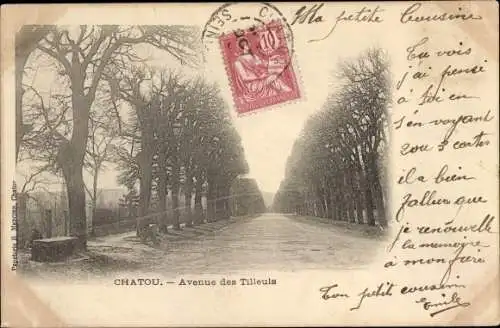 SEINE
10
Ma petite Cousine
Tu vois
j'ai pensé
à toi en
t'envoyant
ou 3 cartes
il a bien
fallur que
je renouvelle
la mémoire
à mon frère
Ton petit cousin
Emile
Papeterie B. Chatou
CHATOU. — Avenue des Tilleuls